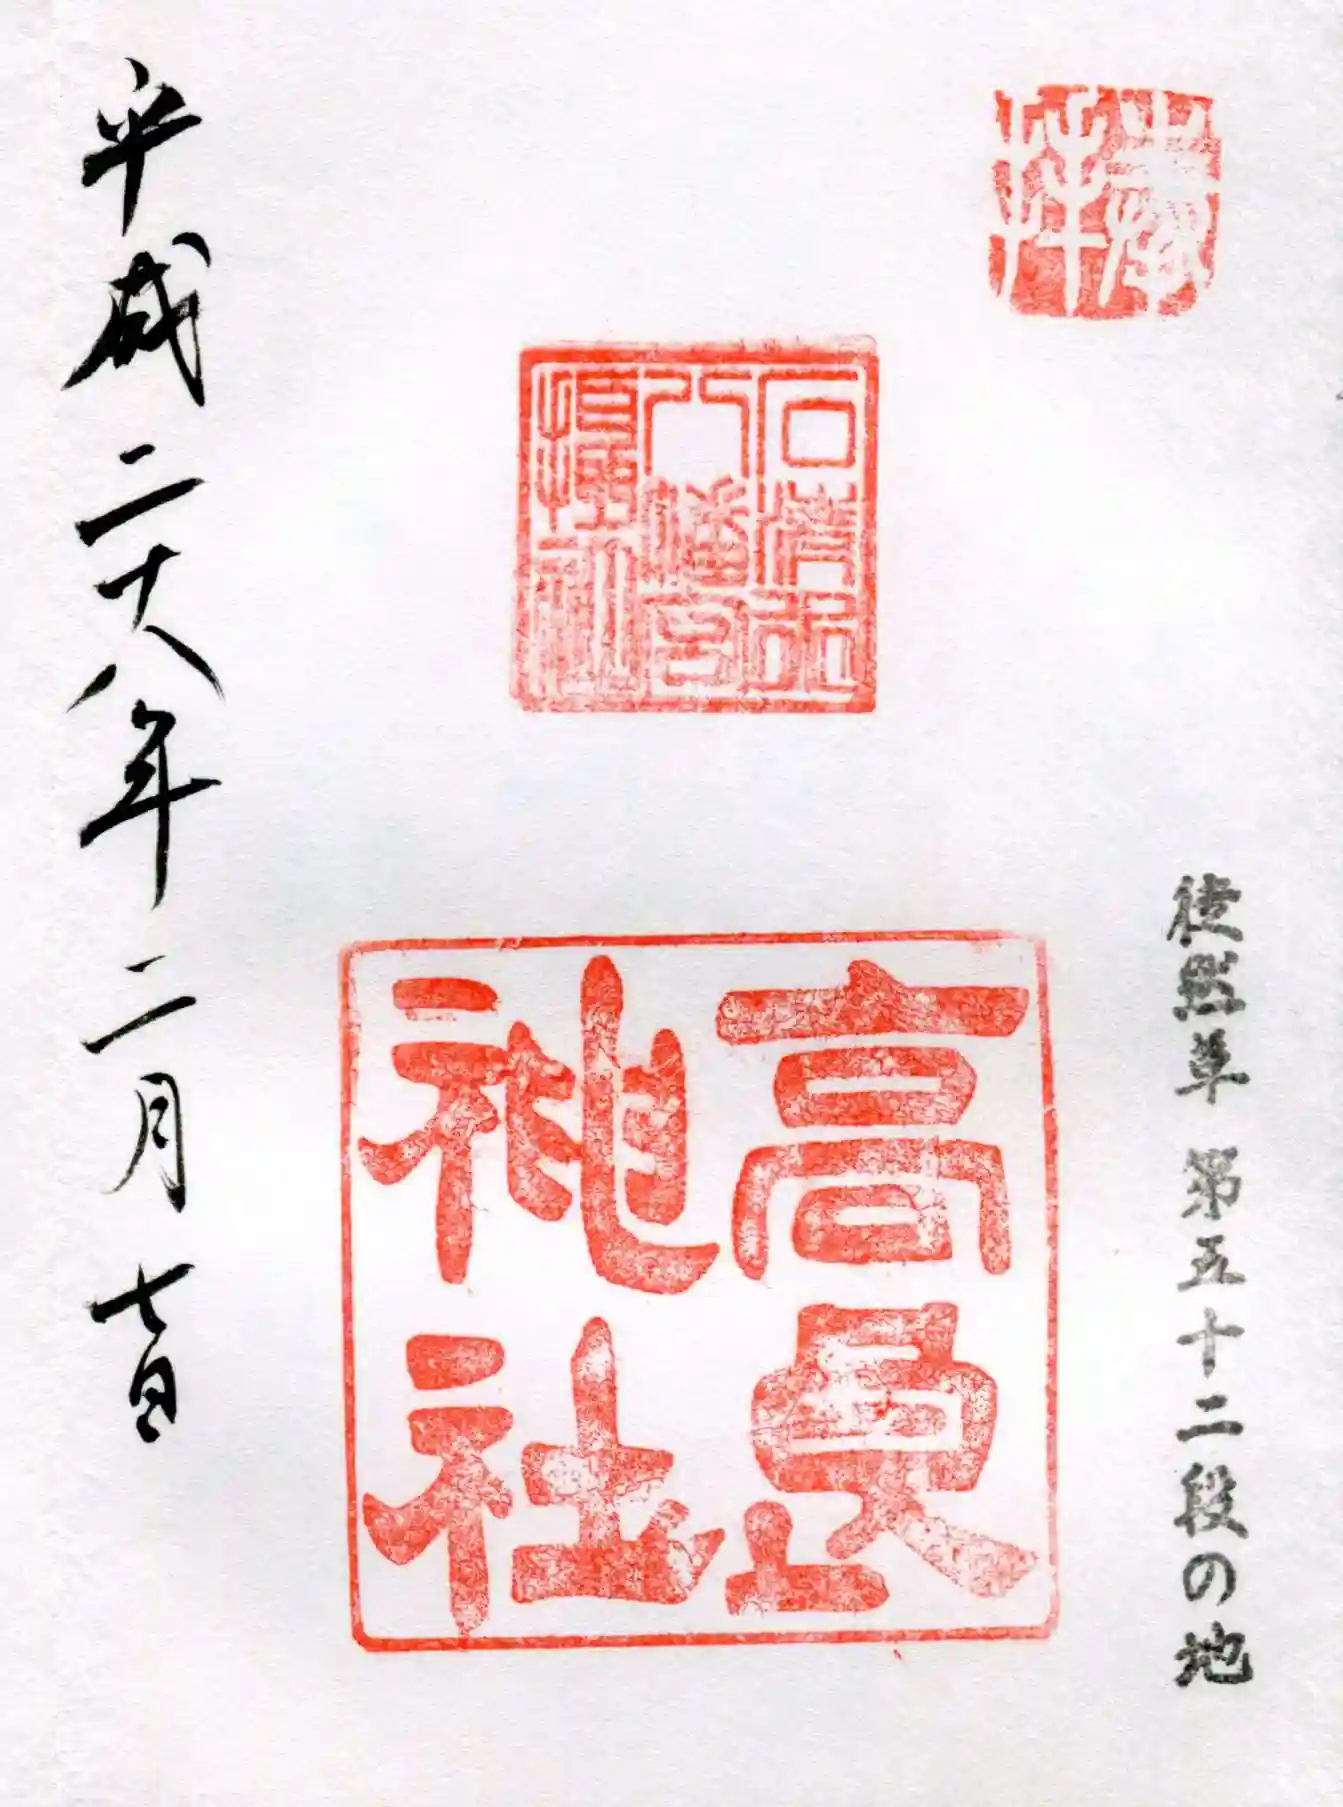 奉拝
徒然草 第五十二段の地
石清水
八幡宮
攝社
高良
神社
平成二十八年二月七日